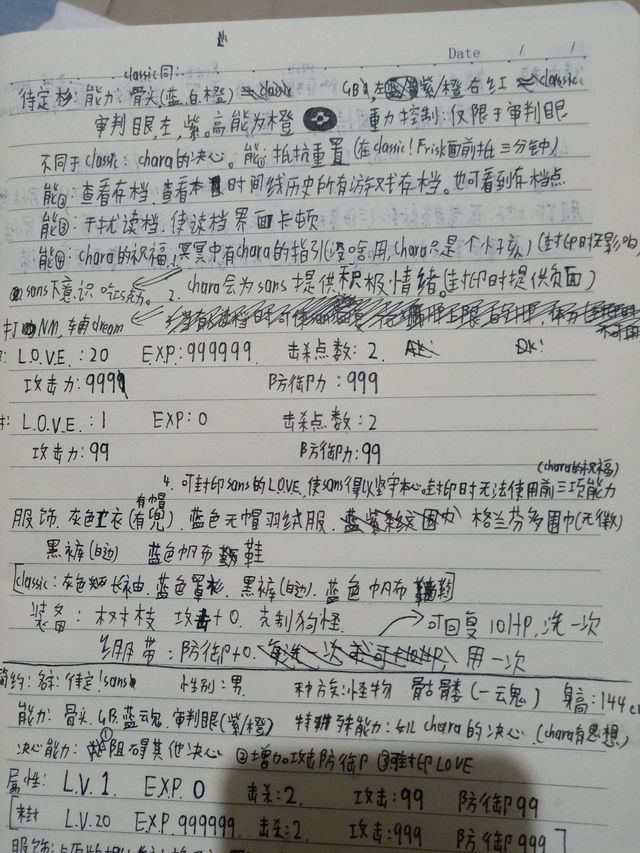 Date / /
classic同:
待定杉 能力: 骨头(蓝.白.橙) GB左紫/橙右红 classic.
审判眼,左,紫。高能为橙 重力控制:仅限于审判眼
不同于classic: chara的决心。能①:抵抗重置(在classic!Frisk面前抵三分钟)
能②:查看存档.查看本时间线历史所有游戏存档。也可看到存档点
能③:干扰读档.使读档界面卡顿
能④:chara的祝福!冥冥中有chara的指引(没啥用,chara只是个小孩)(封印时
sans下意识 2. chara会为sans提供积极情绪。(封印时提供负面)
打NM,辅dream
L.O.V.E.:20 EXP:999999. 击杀点数:2.
攻击力:999 防御力:999
L.O.V.E.:1 EXP:0 击杀点数:2
攻击力:99 防御力:99
(chara的祝福)
4.可封印sans的LOVE,使sans得以坚守本心。封印时无法使用前三项能力
有帽
服饰.灰色衣(有兜).蓝色无帽羽绒服. 格兰芬多围巾(无徽)
黑裤(白边) 蓝色帆布鞋
[classic:灰色长袖.蓝色罩衫.黑裤(白边).蓝色帆布鞋]
装备:树枝 攻击+0.克制狗怪. 可回复10HP,洗一次
绷带:防御+0. 用一次
简约:名字:待定!sans 性别:男. 种族:怪物 骷髅(一云鬼) 身高:144c
能力:骨头.GB.蓝魂.审判眼(紫/橙) 特殊能力:如chara的决心.(chara有思想)
决心能力:①阻碍其他决心 ②增加攻击防御 ③封印LOVE
属性: L.V.1. EXP.0 击杀:2. 攻击:99 防御99
L.V.20 EXP.999999. 击杀:2. 攻击:999 防御999]